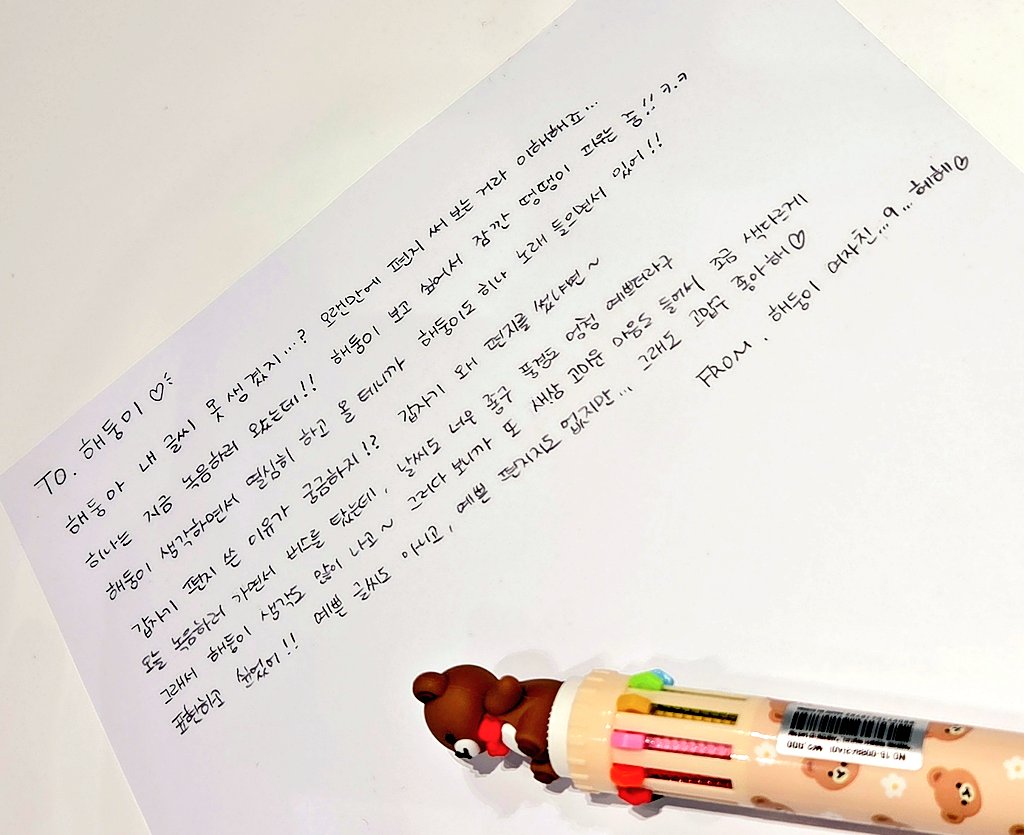 TO. 해둥이♡
해둥아 내 글씨 못 생겼지...? 오랜만에 편지 써 보는 거라 이해해죠...
히나는 지금 녹음하러 왔는데!! 해둥이 보고 싶어서 잠깐 땡땡이 피우는 중!! ㅋ.ㅋ
해둥이 생각하면서 열심히 하고 올 테니까 해둥이도 히나 노래 들으면서 있어!!
갑자기 편지 쓴 이유가 궁금하지!? 갑자기 왜 편지를 썼냐면~
오늘 녹음하러 가면서 버스를 탔는데, 날씨도 너무 좋구 풍경도 엄청 예쁘더라구
그래서 해둥이 생각도 많이 나고~ 그러다 보니까 또 새삼 고마운 마음도 들어서 조금 색다르게
표현하고 싶었어!! 예쁜 글씨도 아니고, 예쁜 편지지도 없지만... 그래도 고맙구 좋아해♡
FROM. 해둥이 여자친...9... 헤헤♡
NO.18-0098(431A01) ₩6,000